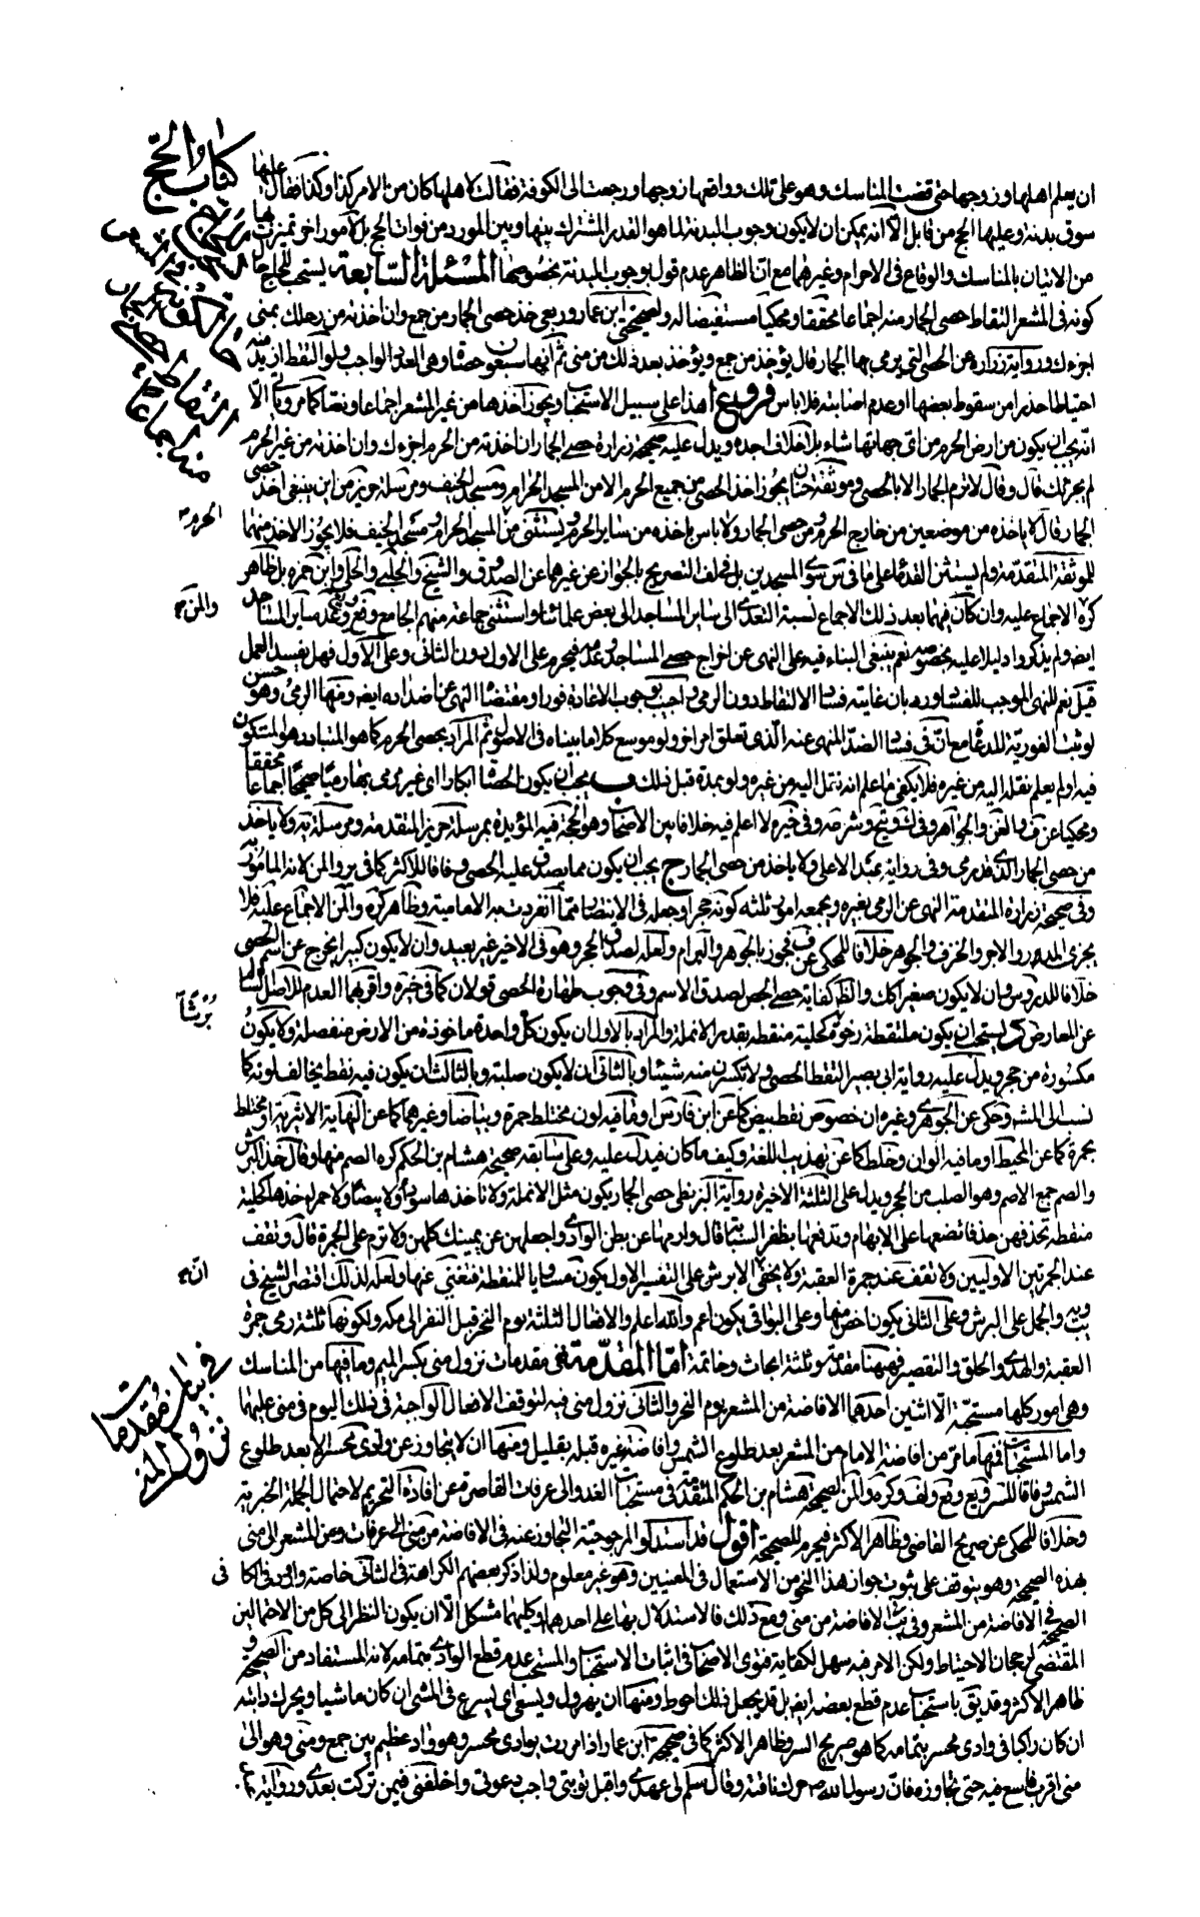 كتاب الحج
ان يعلم اهلها وزوجها حتى قضت المناسك وهو على تلك وواقعها زوجها ورجعت الى الكوفة فقالت لاهلها كان من الامر كذا وكذا فقال عليها
سوق بدنة وعليها الحج من قابل الا انه يمكن ان لا يكون وجوب البدنة لما هو القدر المشترك بينها وبين المورد من فوات الحج بل لامور اخر تميزت بها
من الاتيان بالمناسك والوقاع فى الاحرام وغيرهما مع ان الظاهر عدم قول بوجوب البدنة بخصوصها المسئلة السابعة يستحب للحاج حال
كونه فى المشعر التقاط حصى الجمار منه اجماعا محققا ومحكيا مستفيضا له ولصحيحتى ابن عمار وربعى خذ حصى الجمار من جمع وان اخذته من رحلك بمنى
اجزءك ورواية زرارة عن الحصى التى يرمى بها الجمار قال يؤخذ من جمع ويؤخذ بعد ذلك من منى ثم انها سبعون حصاة وهى العدد الواجب ولو التقط ازيد منه
احتياطا حذرا من سقوط بعضها او عدم اصابته فلا باس فروع ا هذا على سبيل الاستحباب ويجوز اخذها من غير المشعر اجماعا ونصا كما مر وياتى الا
انه يجب ان يكون من ارض الحرم من اى جهاتها شاء بلا خلاف اجده ويدل عليه صحيحة زرارة حصى الجمار ان اخذته من الحرم اجزءك وان اخذته من غير الحرم
لم يجزك قال وقال لا ترم الجمار الا بالحصى وموثقة حنان يجوز اخذ الحصى من جميع الحرم الا من المسجد الحرام ومسجد الخيف ومرسلة حريز من اين ينبغى اخذ حصى
الجمار قال لا ياخذه من موضعين من خارج الحرم ومن حصى الجمار ولا باس باخذه من ساير الحرم ويستثنى من المسجد الحرام ومسجد الخيف فلا يجوز الاخذ منهما
الحرم
للموثقة المتقدمة ولم يستثن القدماء على ما فى سوى المسجدين بل فى خلف التصريح بالجواز عن غيرهما عن الصدوق والشيخ والحلبى والحلى وابن حمزة بل ظاهر
كره الاجماع عليه وان كان فيهما بعد ذلك الاجماع نسبة التعدى الى ساير المساجد الى بعض علمائنا واستثنى جماعة منهم الجامع وفع ساير المساجد
ايضا ولم يذكروا دليلا عليه بخصوصه نعم ينبغى البناء فيه على النهى عن اخراج حصى المساجد وعدمه فيحرم على الاول دون الثانى وعلى الاول فهل يفسد العمل
قيل نعم للنهى الموجب للفساد ورد بان غايته فساد الالتقاط دون الرمى واجيب بوجوب الاعادة فورا ومقتضاه النهى عن اضداده ايضا ومنها الرمى وهو حسن
لو ثبت الفورية للدعا مع ان فى فساد الضد المنهى عنه الذى تعلق امر اخر ولو موسع كلاما بيناه فى الاصول ثم المراد بحصى الحرم كما هو المتبادر هو المتكون
فيه او لم يعلم نقله اليه من غيره فلا يكفى ما علم انه نقل اليه من غيره ولو بمدة قبل ذلك ب يجب ان يكون الحصاة ابكارا اى غير مرمى بها رميا صحيحا اجماعا محققا
ومحكيا عن ف والغنية والجواهر وفى ك ويح وشرحه وفى خيرة لا اعلم فيه خلافا بين الاصحاب وهو الحجة فيه المؤيدة بمرسلة حريز المتقدمة ومرسلة يه ولا ياخذ
من حصى الجمار الذى قد رمى وفى رواية عبد الاعلى ولا ياخذ من حصى الجمار ج يجب ان يكون مما يصدق عليه الحصى وفاقا للاكثر كما فى بر والمن لانه المامور به
وفى صحيحة زرارة المتقدمة النهى عن الرمى بغيره ويجمعه امور ثلثة كونه حجرا وجعله فى الانتصار مما انفردت به الامامية وظاهر كره والمن الاجماع عليه فلا
يجزى المدر والاجر والخزف والجوهر خلافا للمحكى عن ف فجوز بالجوهر والبرام ولعله لصدق الحجر وهو فى الاخير غير بعيد وان لا يكون كبيرا يخرج عن اسم الحصى
خلافا للدروس وان لا يكون صغيرا كك والظ كفاية حصى الجص لصدق الاسم وفى وجوب طهارة الحصى قولان كما فى خيرة واقربهما العدم للاصل السالم
عن المعارض د يستحب ان يكون ملتقطة رخوة كحلية منقطة بقدر الانملة والمراد بالاول ان يكون كل واحدة ماخوذة من الارض منفصلة ولا يكون
برشا
مكسورة من حجر ويدل عليه رواية ابى بصير التقط الحصى ولا تكسرن منه شيئا وبالثانى ان لا يكون صلبة وبالثالث ان يكون فيه نقط يخالف لونه كما
نسب الى المشهور وحكى عن الجوهرى وغيره ان خصوص نقط بيض كما عن ابن فارس او ما فيه لون مختلط حمرة وبياضا وغيرهما كما عن النهاية الاثيرية او مختلط
بحمرة كما عن المحيط او ما فيه الوان وخلط كما عن تهذيب اللغة وكيف ما كان فيدل عليه وعلى سابقه صحيحة هشام بن الحكم كره الصم منها وقال خذ البرش
والصم جمع الاصم وهو الصلب من الحجر ويدل على الثلثة الاخيرة رواية البزنطى حصى الجمار يكون مثل الانملة ولا تاخذها سودا ولا بيضا ولا حمرا خذها كحلية
منقطة تخذفهن خذفا تضعها على الابهام وتدفعها بظفر السبابة قال وارمها من بطن الوادى واجعلهن عن يمينك كلهن ولا ترم على الجمرة قال وتقف
عند الجمرتين الاوليين ولا تقف عند جمرة العقبة ولا يخفى الابرش على التفسير الاول يكون مساويا للنقطة فتغنى عنها ولعله لذلك اقتصر الشيخ فى
انه
يب والجمل على البرش وعلى الثانى يكون اخص منها وعلى البواقى يكون اعم والله اعلم والافعال الثلثة يوم النحر قبل النفر الى مكة ولكونها ثلثة رمى جمرة
العقبة والهدى والحلق والتقصير فههنا مقدمة وثلثة ابحاث وخاتمة اما المقدمة ففى مقدمات نزول منى بكسر الميم وما فيها من المناسك
فى بيان مقدمات نزول المنى
وهى امور كلها مستحبة الا اثنين احدهما الافاضة من المشعر يوم النحر والثانى نزول منى فيه لتوقف الافعال الواجبة فى ذلك اليوم فى منى عليهما
واما المستحبات فمنها ما مر من افاضة الامام من المشعر بعد طلوع الشمس وافاضة غيره قبله بقليل ومنها ان لا يتجاوز عن وادى محسر الا بعد طلوع
الشمس وفاقا للسرو يع وفع ولف وكره والمن لصحيحة هشام بن الحكم المتقدمة فى مستحبات الغدو الى عرفات القاصرة عن افادة التحريم لاحتمال الجملة الخبرية
وخلافا للمحكى عن صريح القاضى وظاهر الاكثر فيحرم للصحيحة اقول قد استدلوا لمرجوحية التجاوز عنه فى الافاضة من منى الى عرفات ومن المشعر الى منى
بهذه الصحيحة وهو يتوقف على ثبوت جواز هذا النحو من الاستعمال فى المعنيين وهو غير معلوم ولذا ذكر بعضهم الكراهة فى الثانى خاصة واورد فى كا
الصحيحة فى الافاضة من المشعر وفى يب الافاضة من منى ومع ذلك فالاستدلال بها على احدهما او كليهما مشكل الا ان يكون النظر الى كل من الاحتمالين
المقتضى لرجحان الاحتياط ولكن الامر فيه سهل لكفاية فتوى الاصحاب فى اثبات الاستحباب والمستحب عدم قطع الوادى بتمامه لانه المستفاد من الصحيحة و
ظاهر الاكثر وقد يق باستحباب عدم قطع بعضه ايضا بل قد يجعل ذلك احوط ومنها ان يهرول ويسعى اى يسرع فى المشى ان كان ماشيا ويحرك دابته
ان كان راكبا فى وادى محسر بتمامه كما هو صريح السر وظاهر الاكثر كما فى صحيحة ابن عمار اذا مررت بوادى محسر وهو واد عظيم بين جمع ومنى وهو الى
منى اقرب فاسع فيه حتى تجاوزه فان رسول الله ص حرك ناقته وقال سلم لى عهدى واقبل توبتى واجب دعوتى واخلفنى فيمن تركت بعدى ورواية